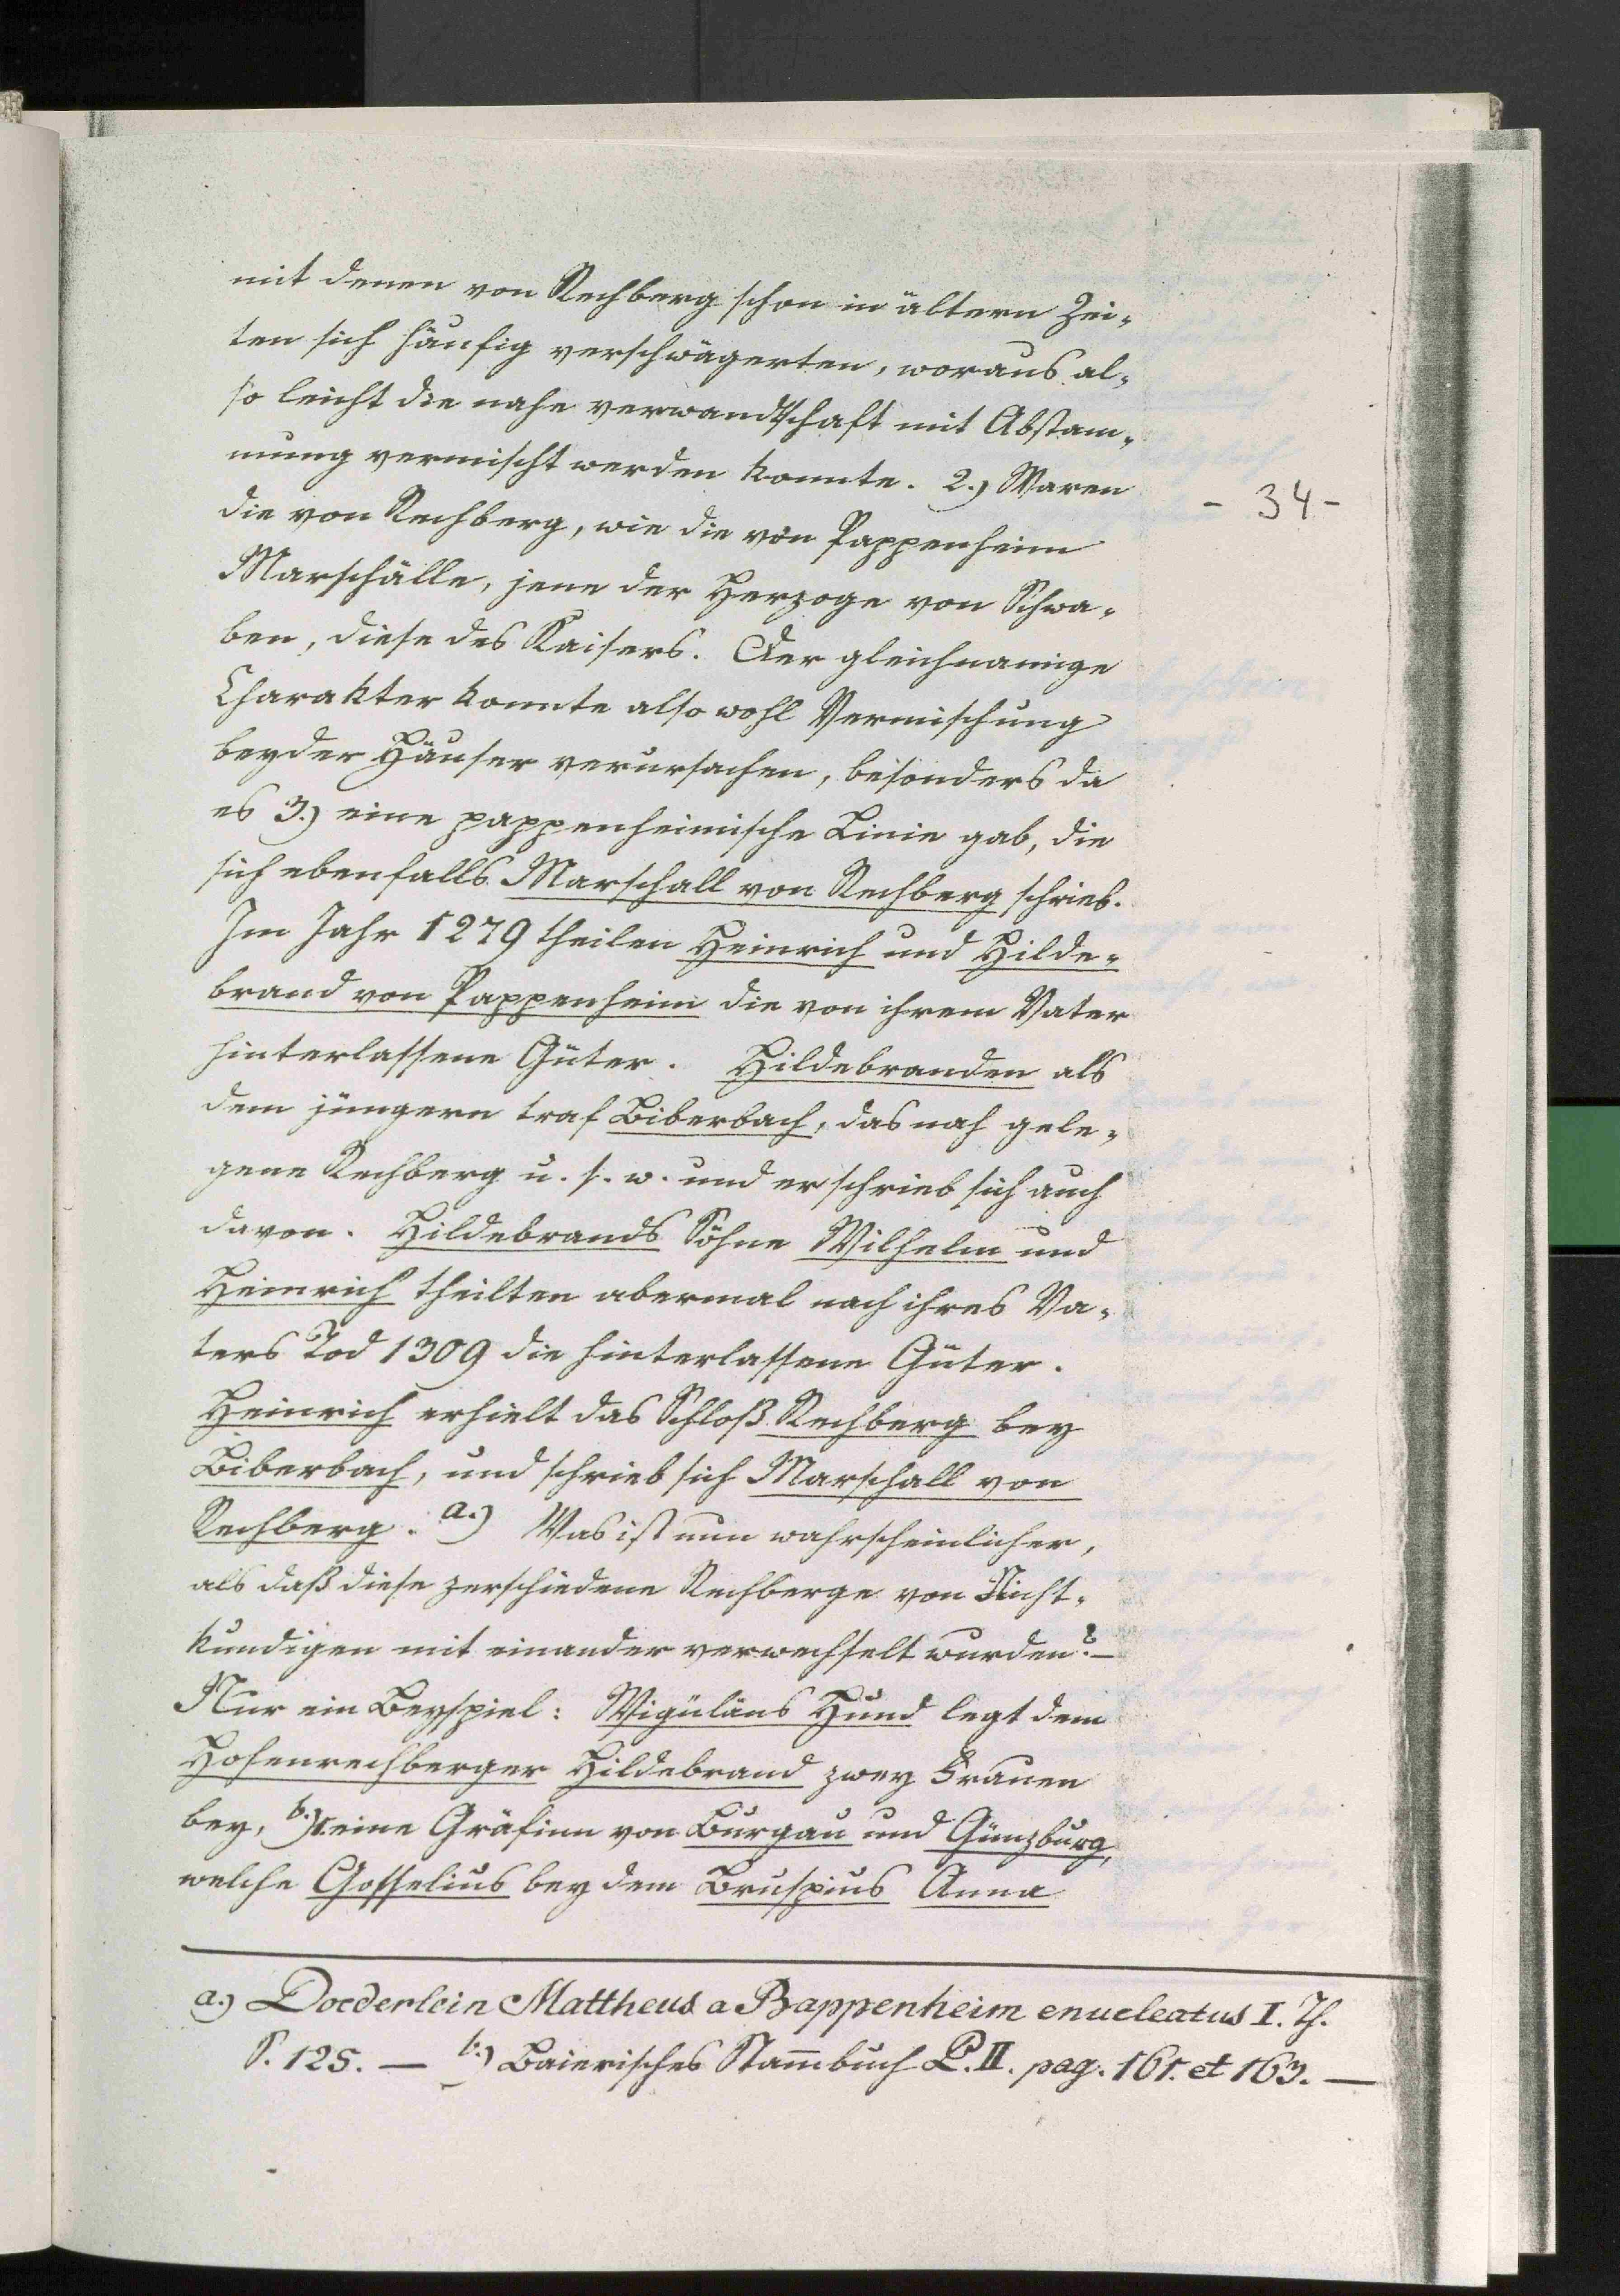 mit denen von Rechberg schon in ältern Zei-
ten sich häufig verschwägerten, woraus al-
so leicht die nahe verwandtschaft mit Abstam-
mung vermischt werden konnte. 2.) Waren
- 34 -
die von Rechberg, wie die von Pappenheim
Marschälle, jene der Herzoge von Schwa-
ben, diese des Kaisers. Der gleichnamige
Charakter konnte also wohl Vermischung
beyder Häuser verursachen, besonders da
es 3.) eine pappenheimische Linie gab, die
sich ebenfalls Marschall von Rechberg schrieb.
Im Jahr 1279 theilen Heinrich und Hilde-
brand von Pappenheim die von ihrem Vater
hinterlassene Güter. Hildebranden als
dem jüngern traf Biberbach, das nah gele-
gene Rechberg u. s. w. und er schrieb sich auch
davon. Hildebrands Söhne Wilhelm und
Heinrich theilten abermal nach ihres Va-
ters Tod 1309 die hinterlassene Güter.
Heinrich erhielt das Schloß Rechberg bey
Biberbach, und schrieb sich Marschall von
Rechberg. a.) Was ist nun wahrscheinlicher,
als daß diese zerschiedene Rechberge von Nicht-
kundigen mit einander verwechselt wurden? –
Nur ein Beyspiel: Wiguläus Hund legt dem
Hohenrechberger Hildebrand zwey Frauen
bey, b.) 1. eine Gräfinn von Burgau und Günzburg,
welche Gosselius bey dem Bruschius Anna
a.) Doederlein Mattheus a Bappenheim enucleatus I. Th.
S. 125. — b.) Baierisches Stammbuch P. II. pag. 161. et 163. —